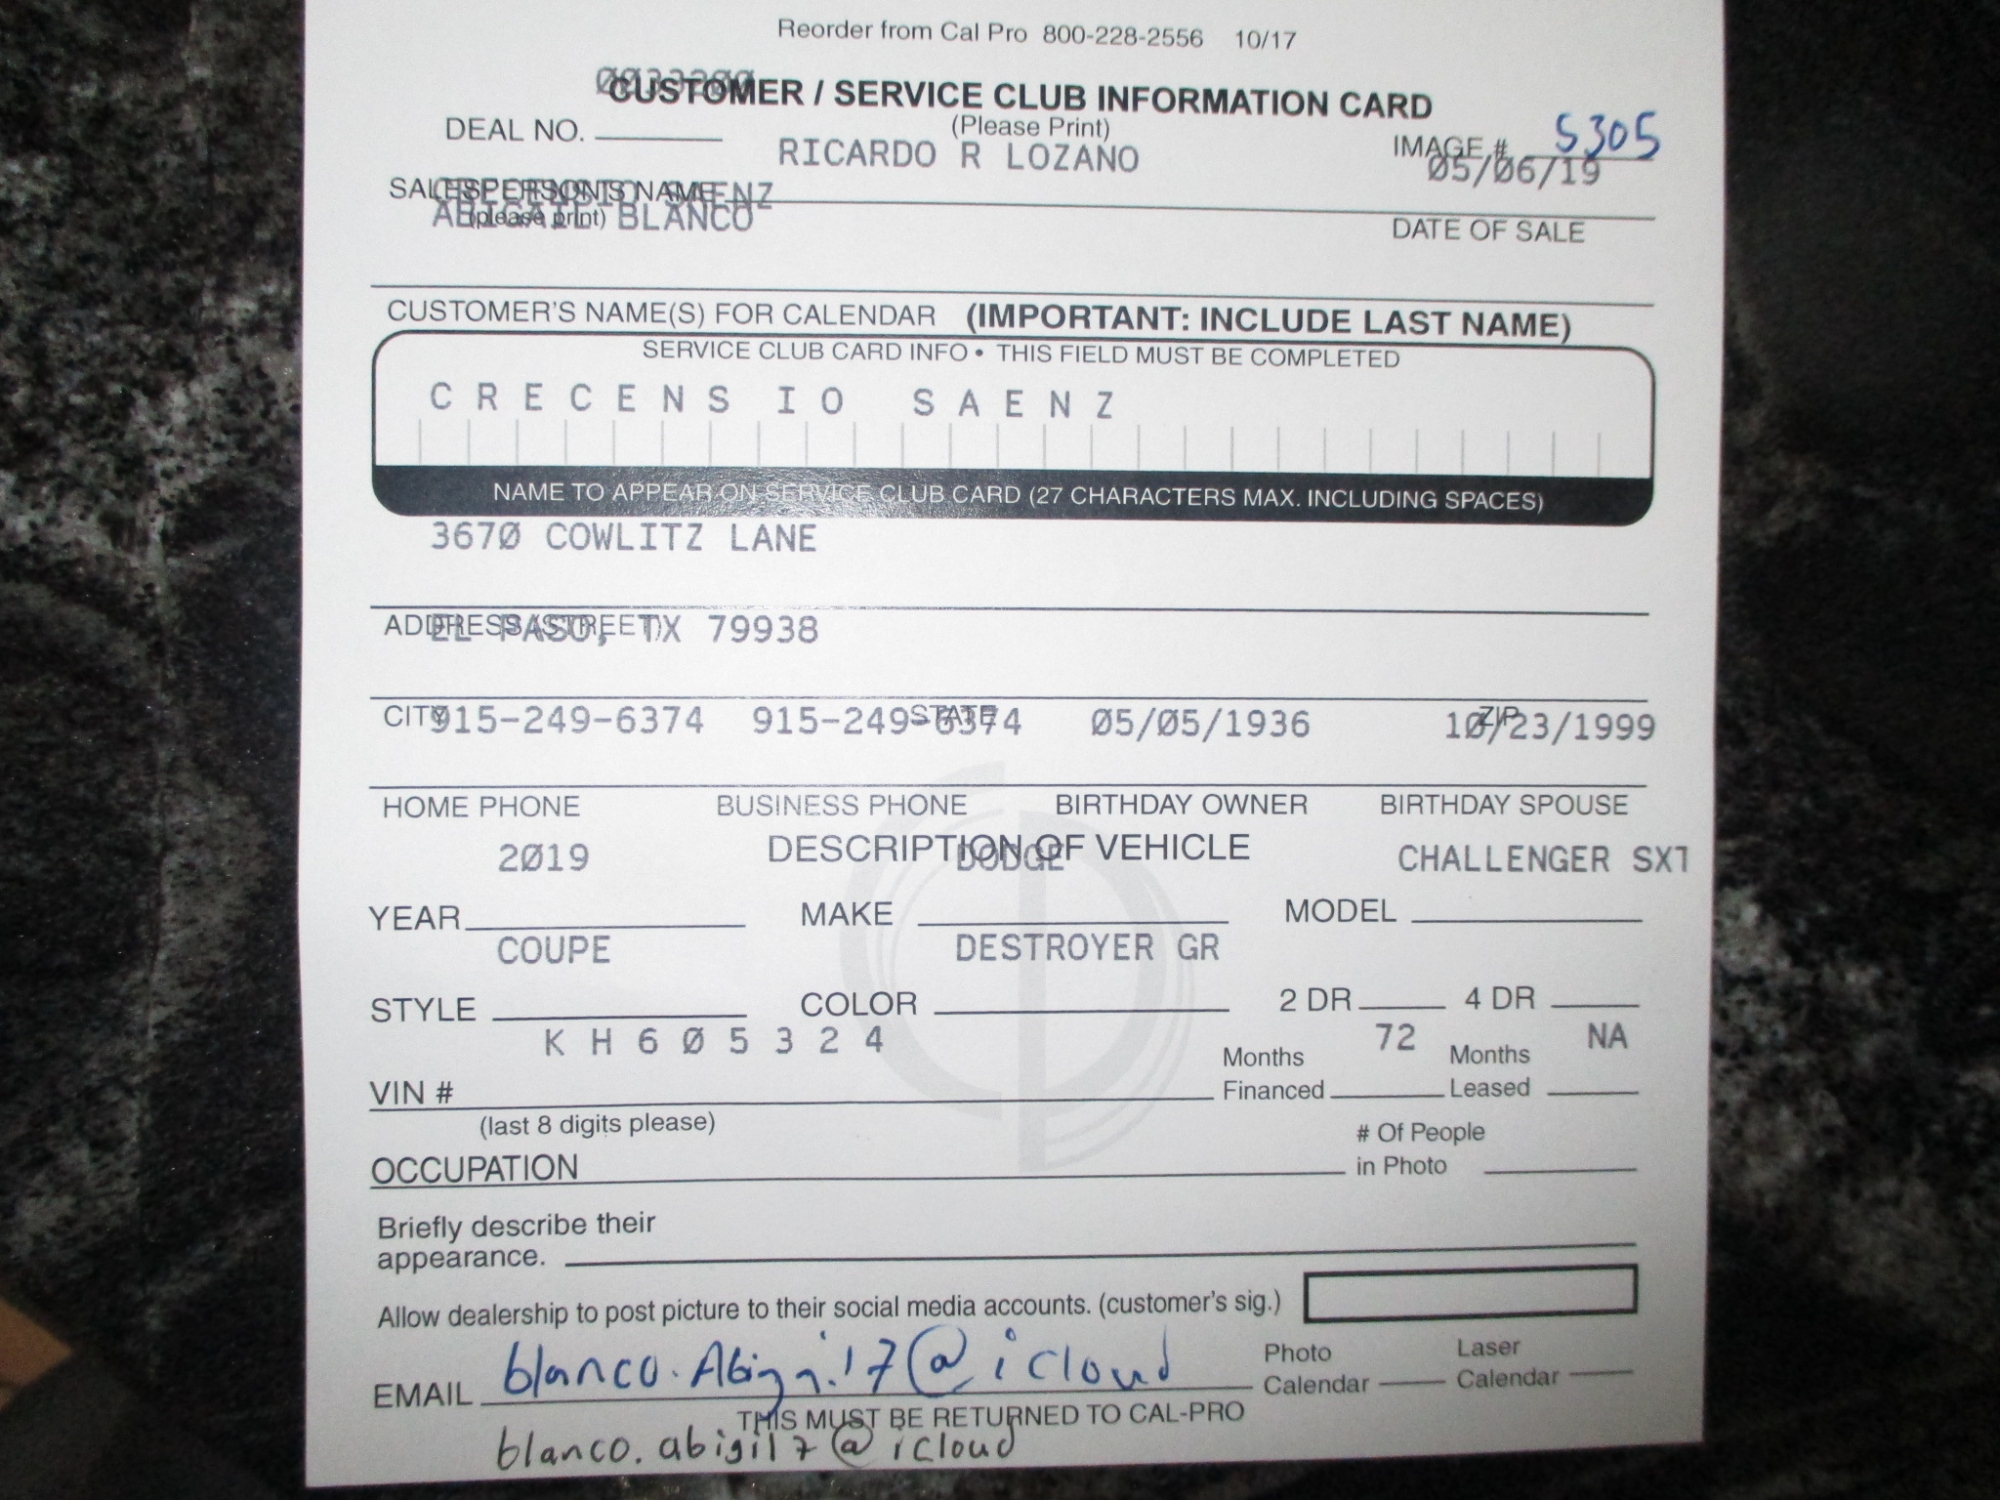 Reorder from Cal Pro 800-228-2556 10/17
CUSTOMER / SERVICE CLUB INFORMATION CARD
(Please Print)
DEAL NO.
RICARDO R LOZANO
IMAGE # 5305
05/06/19
SALESPERSON'S NAME SAENZ
(please print)
ABIGAIL BLANCO
DATE OF SALE
CUSTOMER'S NAME(S) FOR CALENDAR (IMPORTANT: INCLUDE LAST NAME)
SERVICE CLUB CARD INFO • THIS FIELD MUST BE COMPLETED
CRECENSIO SAENZ
NAME TO APPEAR ON SERVICE CLUB CARD (27 CHARACTERS MAX. INCLUDING SPACES)
3670 COWLITZ LANE
ADDRESS (STREET)
EL PASO, TX 79938
CITY STATE ZIP
915-249-6374 915-249-6374 05/05/1936 10/23/1999
HOME PHONE BUSINESS PHONE BIRTHDAY OWNER BIRTHDAY SPOUSE
DESCRIPTION OF VEHICLE
2019 DODGE CHALLENGER SXT
YEAR MAKE MODEL
COUPE DESTROYER GR
STYLE COLOR 2 DR 4 DR
KH605324 72 NA
VIN # Months Financed Months Leased
(last 8 digits please)
OCCUPATION # Of People in Photo
Briefly describe their
appearance.
Allow dealership to post picture to their social media accounts. (customer's sig.)
EMAIL blanco.Abigi.17@icloud Photo Calendar Laser Calendar
THIS MUST BE RETURNED TO CAL-PRO
blanco.abigil7@icloud